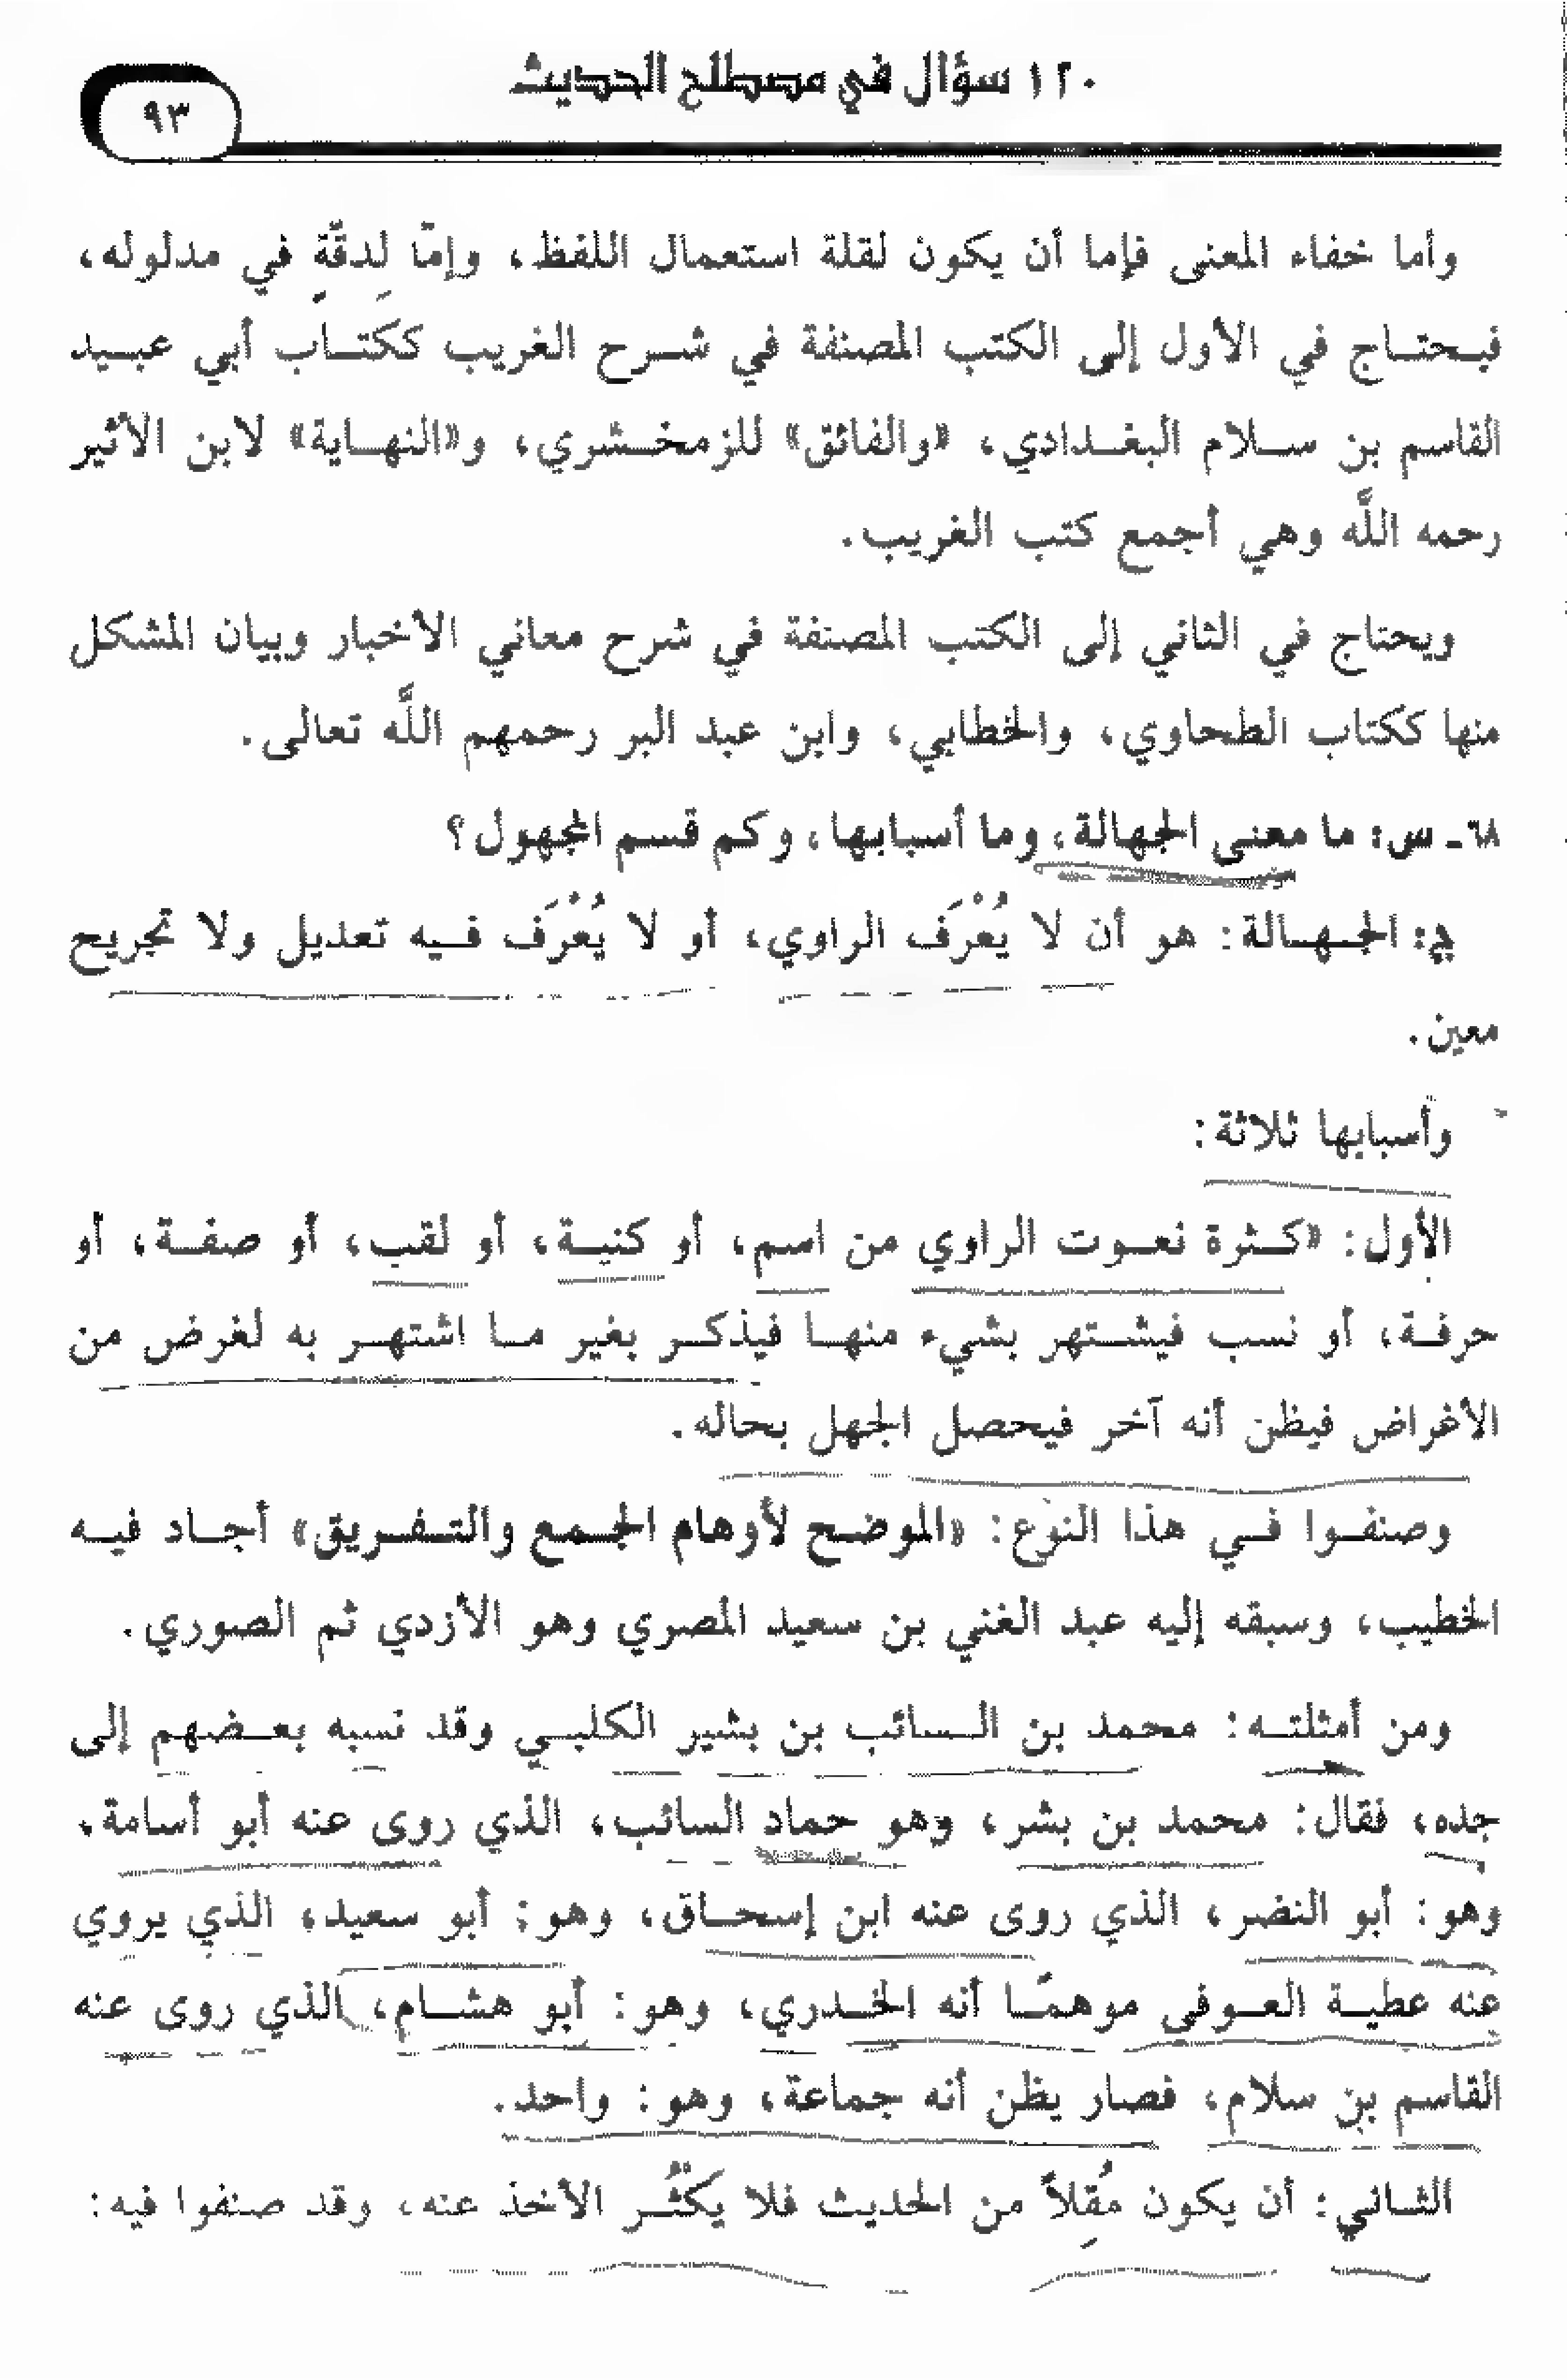 ١٢٠ سؤال في مصطلح الحديث
٩٣
وأما خفاء المعنى فإما أن يكون لقلة استعمال اللفظ، وإمّا لِدقّةٍ في مدلوله،
فيحتاج في الأول إلى الكتب المصنفة في شرح الغريب ككتاب أبي عبيد
القاسم بن سلام البغدادي، «والفائق» للزمخشري، و«النهاية» لابن الأثير
رحمه اللَّه وهي أجمع كتب الغريب.
ويحتاج في الثاني إلى الكتب المصنفة في شرح معاني الأخبار وبيان المشكل
منها ككتاب الطحاوي، والخطابي، وابن عبد البر رحمهم اللَّه تعالى.
٦٨ـ س: ما معنى الجهالة، وما أسبابها، وكم قسم المجهول؟
ج: الجهالة: هو أن لا يُعْرَف الراوي، أو لا يُعْرَف فيه تعديل ولا تجريح
معين.
وأسبابها ثلاثة:
الأول: «كثرة نعوت الراوي من اسم، أو كنية، أو لقب، أو صفة، أو
حرفة، أو نسب فيشتهر بشيء منها فيذكر بغير ما اشتهر به لغرض من
الأغراض فيظن أنه آخر فيحصل الجهل بحاله.
وصنفوا في هذا النوع: «الموضح لأوهام الجمع والتفريق» أجاد فيه
الخطيب، وسبقه إليه عبد الغني بن سعيد المصري وهو الأزدي ثم الصوري.
ومن أمثلته: محمد بن السائب بن بشير الكلبي وقد نسبه بعضهم إلى
جده، فقال: محمد بن بشر، وهو حماد السائب، الذي روى عنه أبو أسامة،
وهو: أبو النضر، الذي روى عنه ابن إسحاق، وهو: أبو سعيد، الذي يروي
عنه عطية العوفى موهمًا أنه الخدري، وهو: أبو هشام، الذي روى عنه
القاسم بن سلام، فصار يظن أنه جماعة، وهو: واحد.
الثاني: أن يكون مُقِلاً من الحديث فلا يَكْثُر الأخذ عنه، وقد صنفوا فيه: